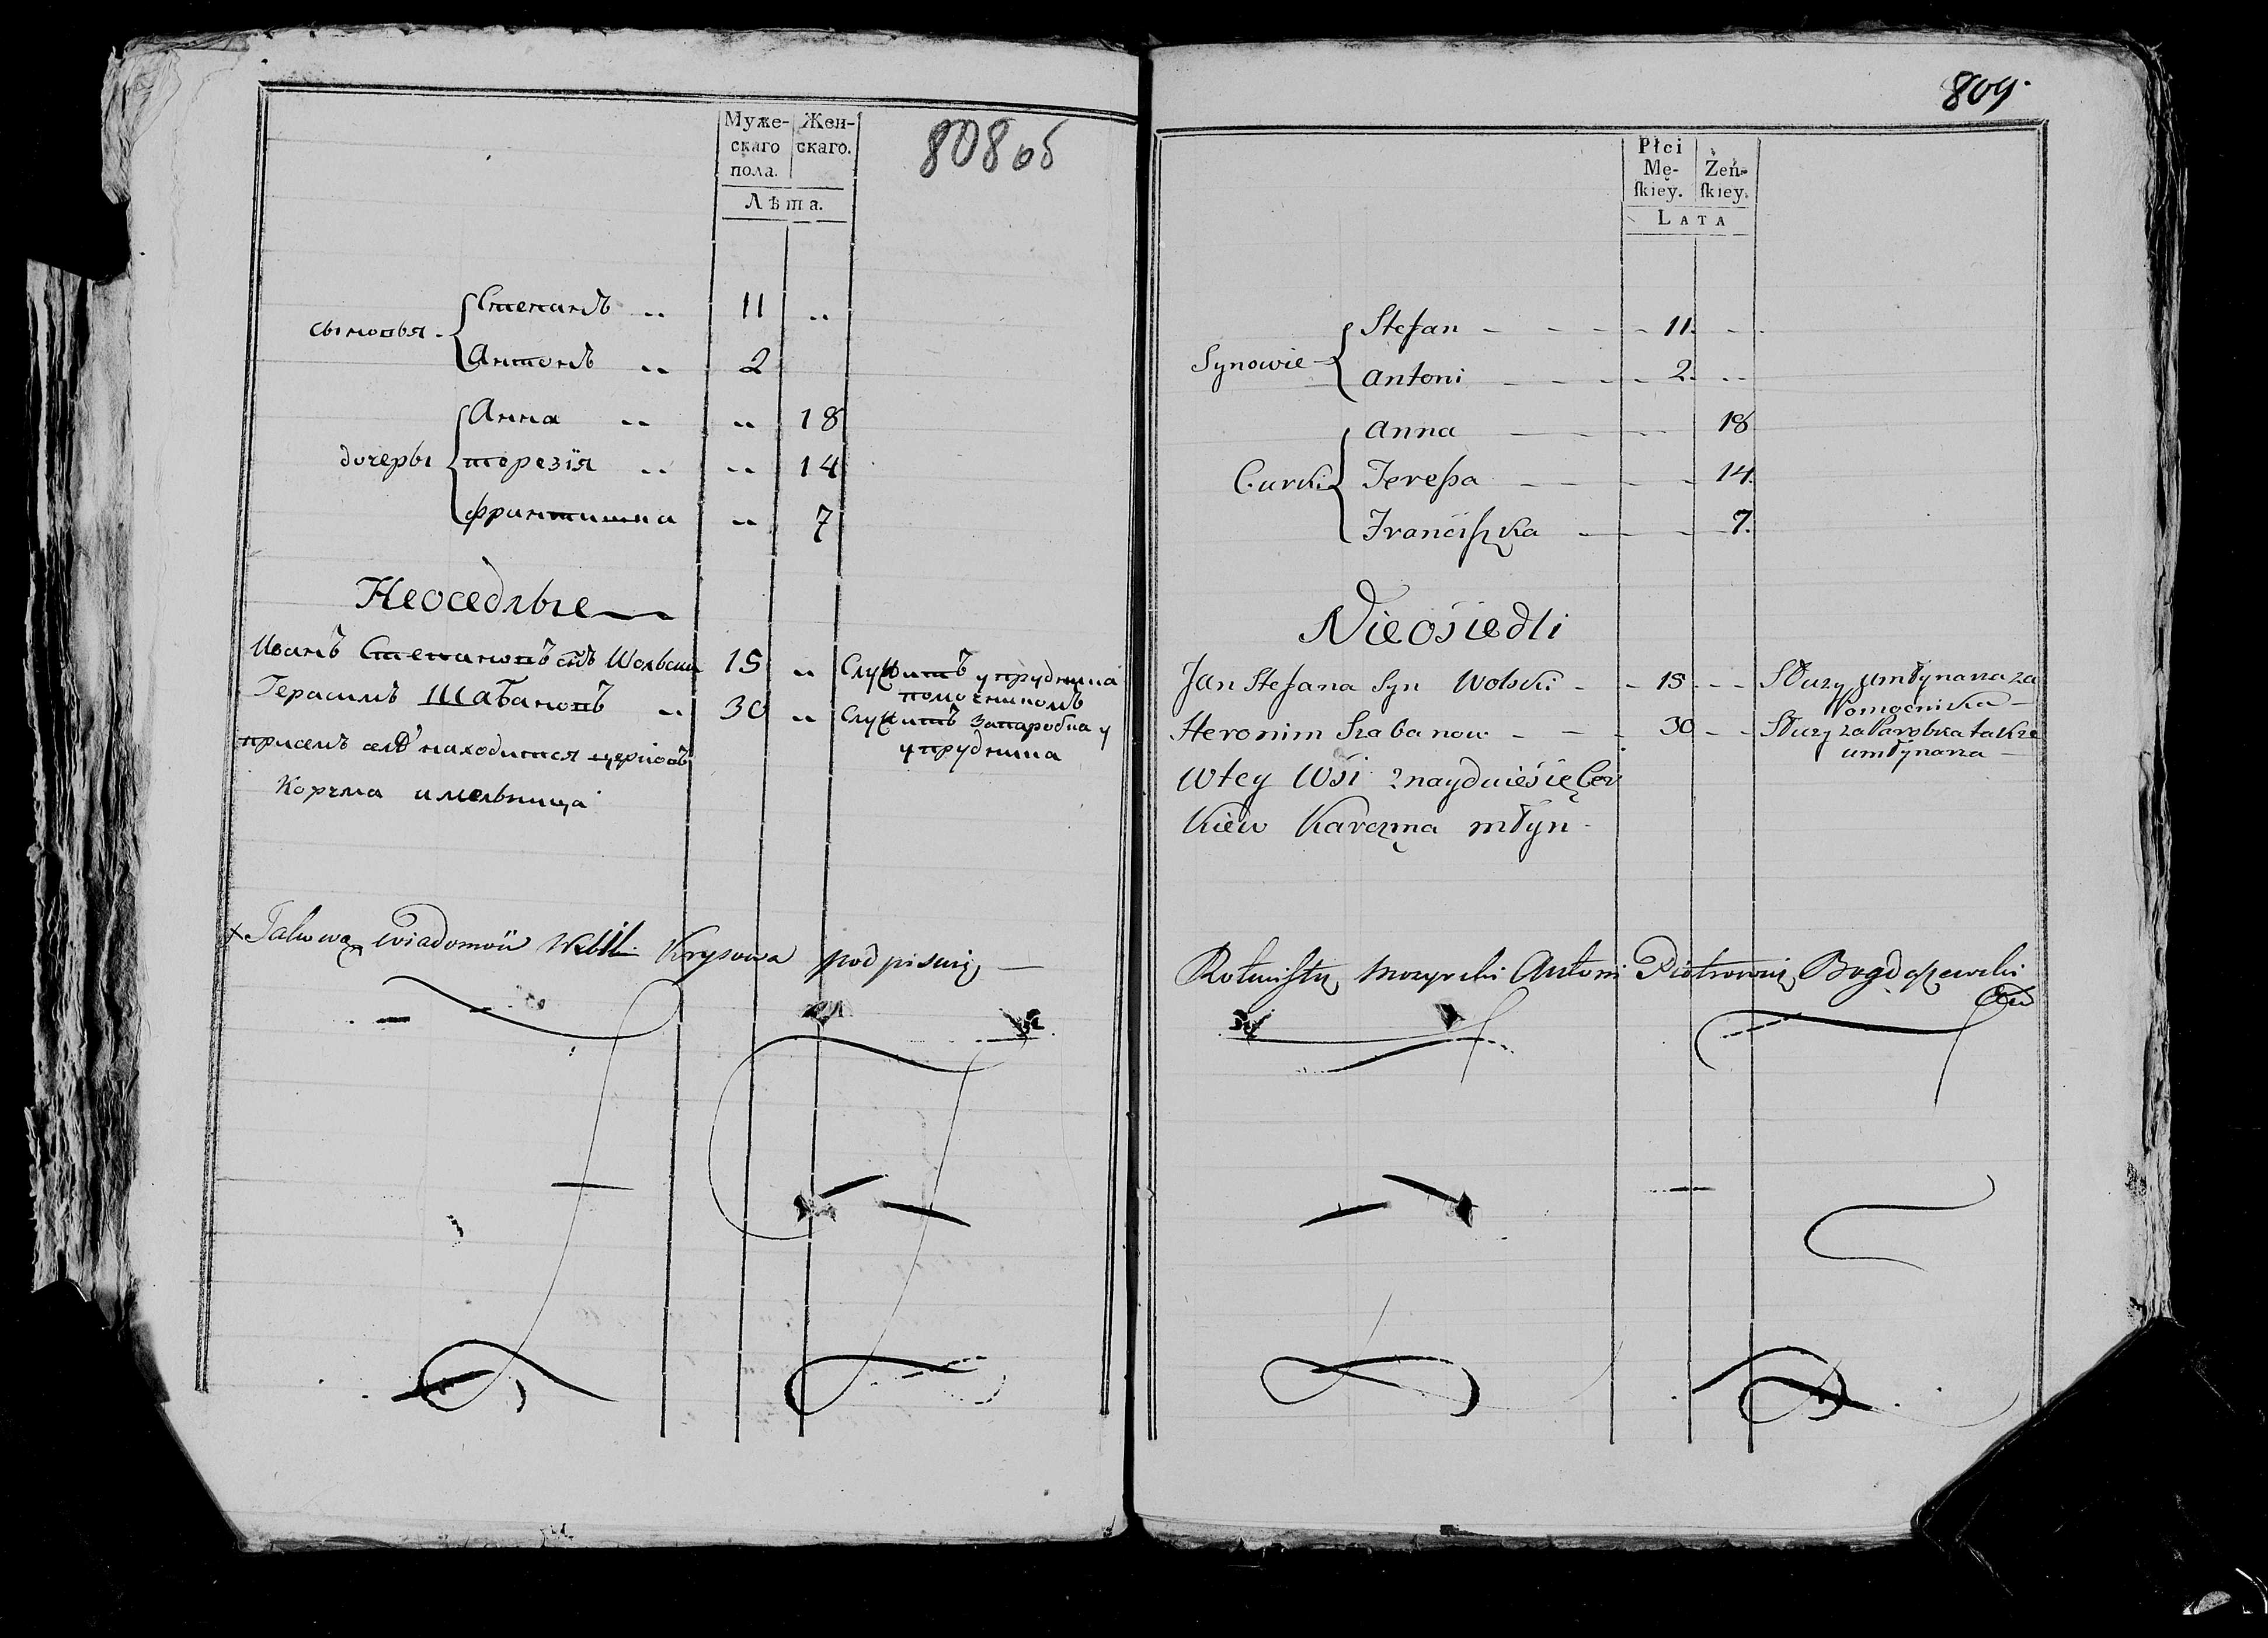 808 об
Муже- Жен-
скаго скаго.
пола.
Лѣта.
сыновья - Степанъ .. 11 ..
Антонъ .. 2
дочеры Анна .. .. 18
терезїя .. .. 14
францишка .. 7
Неоседлые
Иванъ Степановъ снъ Вольски 15 .. Служитъ у прудника
помочникомъ
Герасимъ Шабановъ .. 30 .. Служитъ запаробка у
у прудника
присемъ селѣ находится церковъ
Корчма имельница
Takową wiadomość Krysowa podpisuię
809.
Płci
Mę- Żeń-
ſkiey. ſkiey.
LATA
Synowie Stefan - - - - 11. - -
Antoni - - - - 2. - -
Curki Anna - - - 18
Tereſsa - - - - 14.
Franciſzka - - - 7.
Nieośiedli
Jan Stefana Syn Wolski - - 15 - - Służy umłynarza za
Pomocnika -
Heronim Szabanow - - - 30 - - Służy za Parobka także
umłynarza -
Wtey Wśi znayduieśię Cer
kiew Karczma młyn -
Rotmiſtrz Mozyrski Antoni Piotrowicz Bogdaszewski